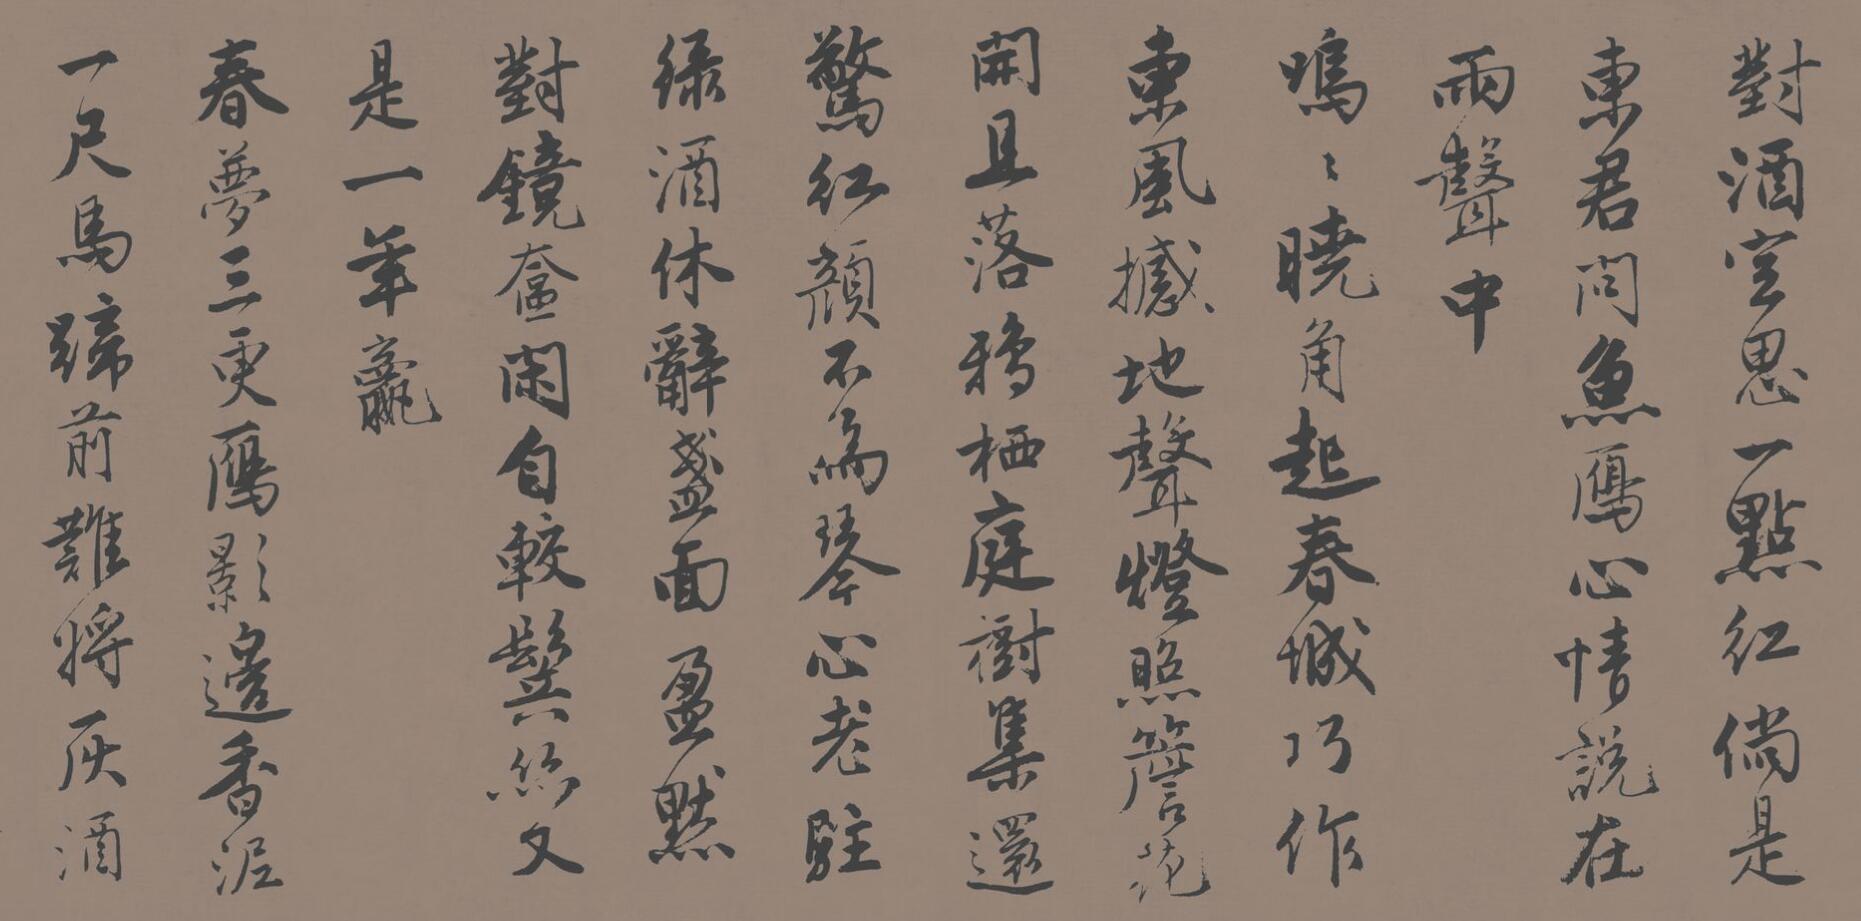 對酒空思一點紅倘是
東君問魚鴈心情說在
雨聲中
嗚〻曉角起春城巧作
東風撼地聲燈照簷花
開且落鴉栖庭樹集還
驚紅顏不為琴心老駐
綠酒休辭盞面盈默
對鏡奩閑自較鬢絲又
是一年贏
春夢三更鴈影邊香泥
一尺馬蹄前難將灰酒